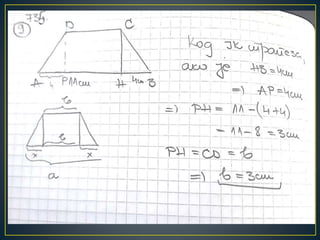 735.
9)
D C
A P 11cm H 4cm B
b
b
x x
a
Код ЈК трапеза,
ако је HB=4cm
=) AP=4cm
=) PH = 11-(4+4)
= 11-8=3cm
PH=CD=b
=) b=3cm